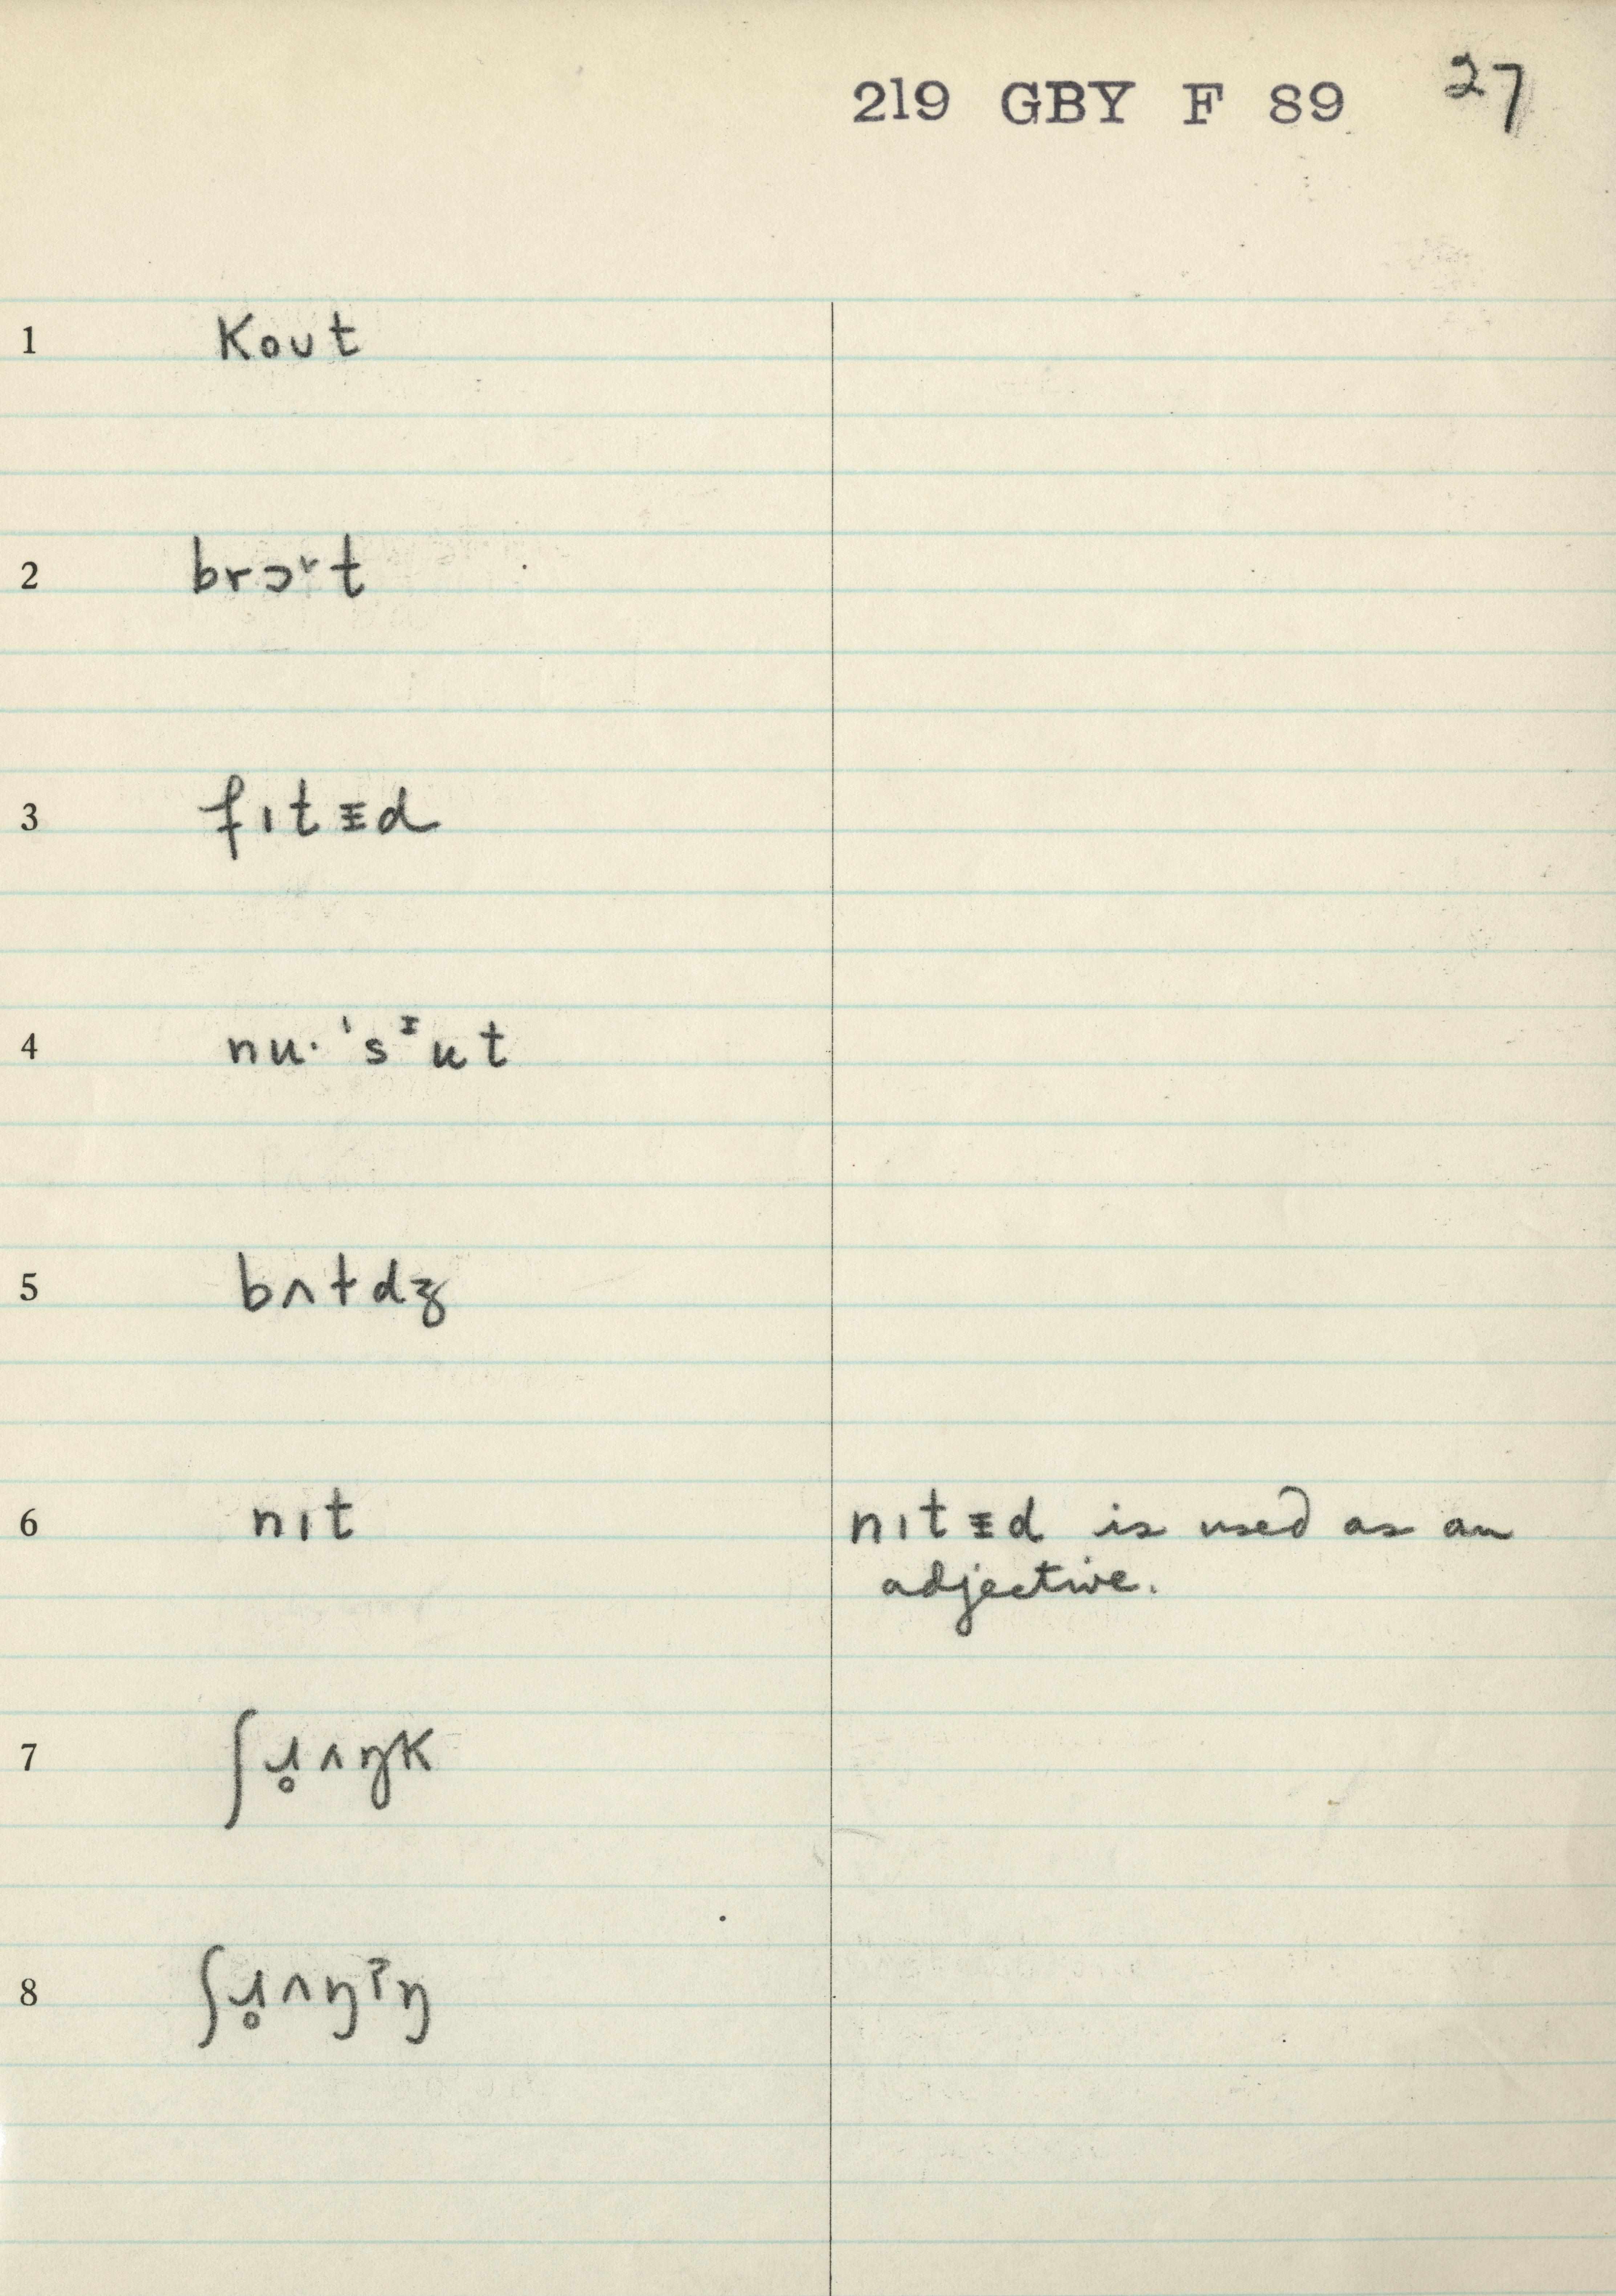 219 GBY F 89 27
1 koʊt
2 brɔɤt
3 fɪtᵻd
4 nu· ˈsᶤut
5 bʌtdʒ
6 nɪt nɪtᵻd is used as an
adjective.
7 ʃɹ̥ʌŋk
8 ʃɹ̥ʌŋɪŋ